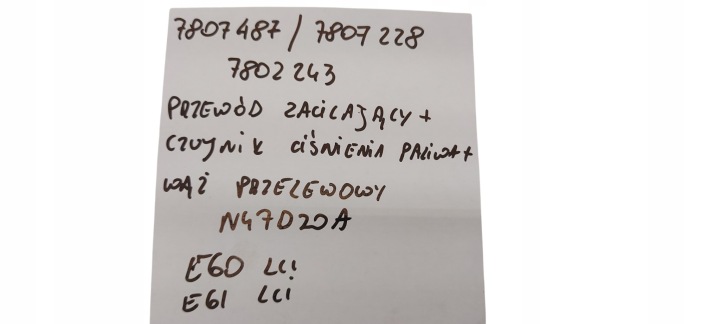 7807487 / 7807228
7802243
PRZEWÓD ZACILAJĄCY +
CZUJNIK CIŚNIENIA PALIWA +
WĄŻ PRZELEWOWY
N47D20A
E60 LCI
E61 LCI